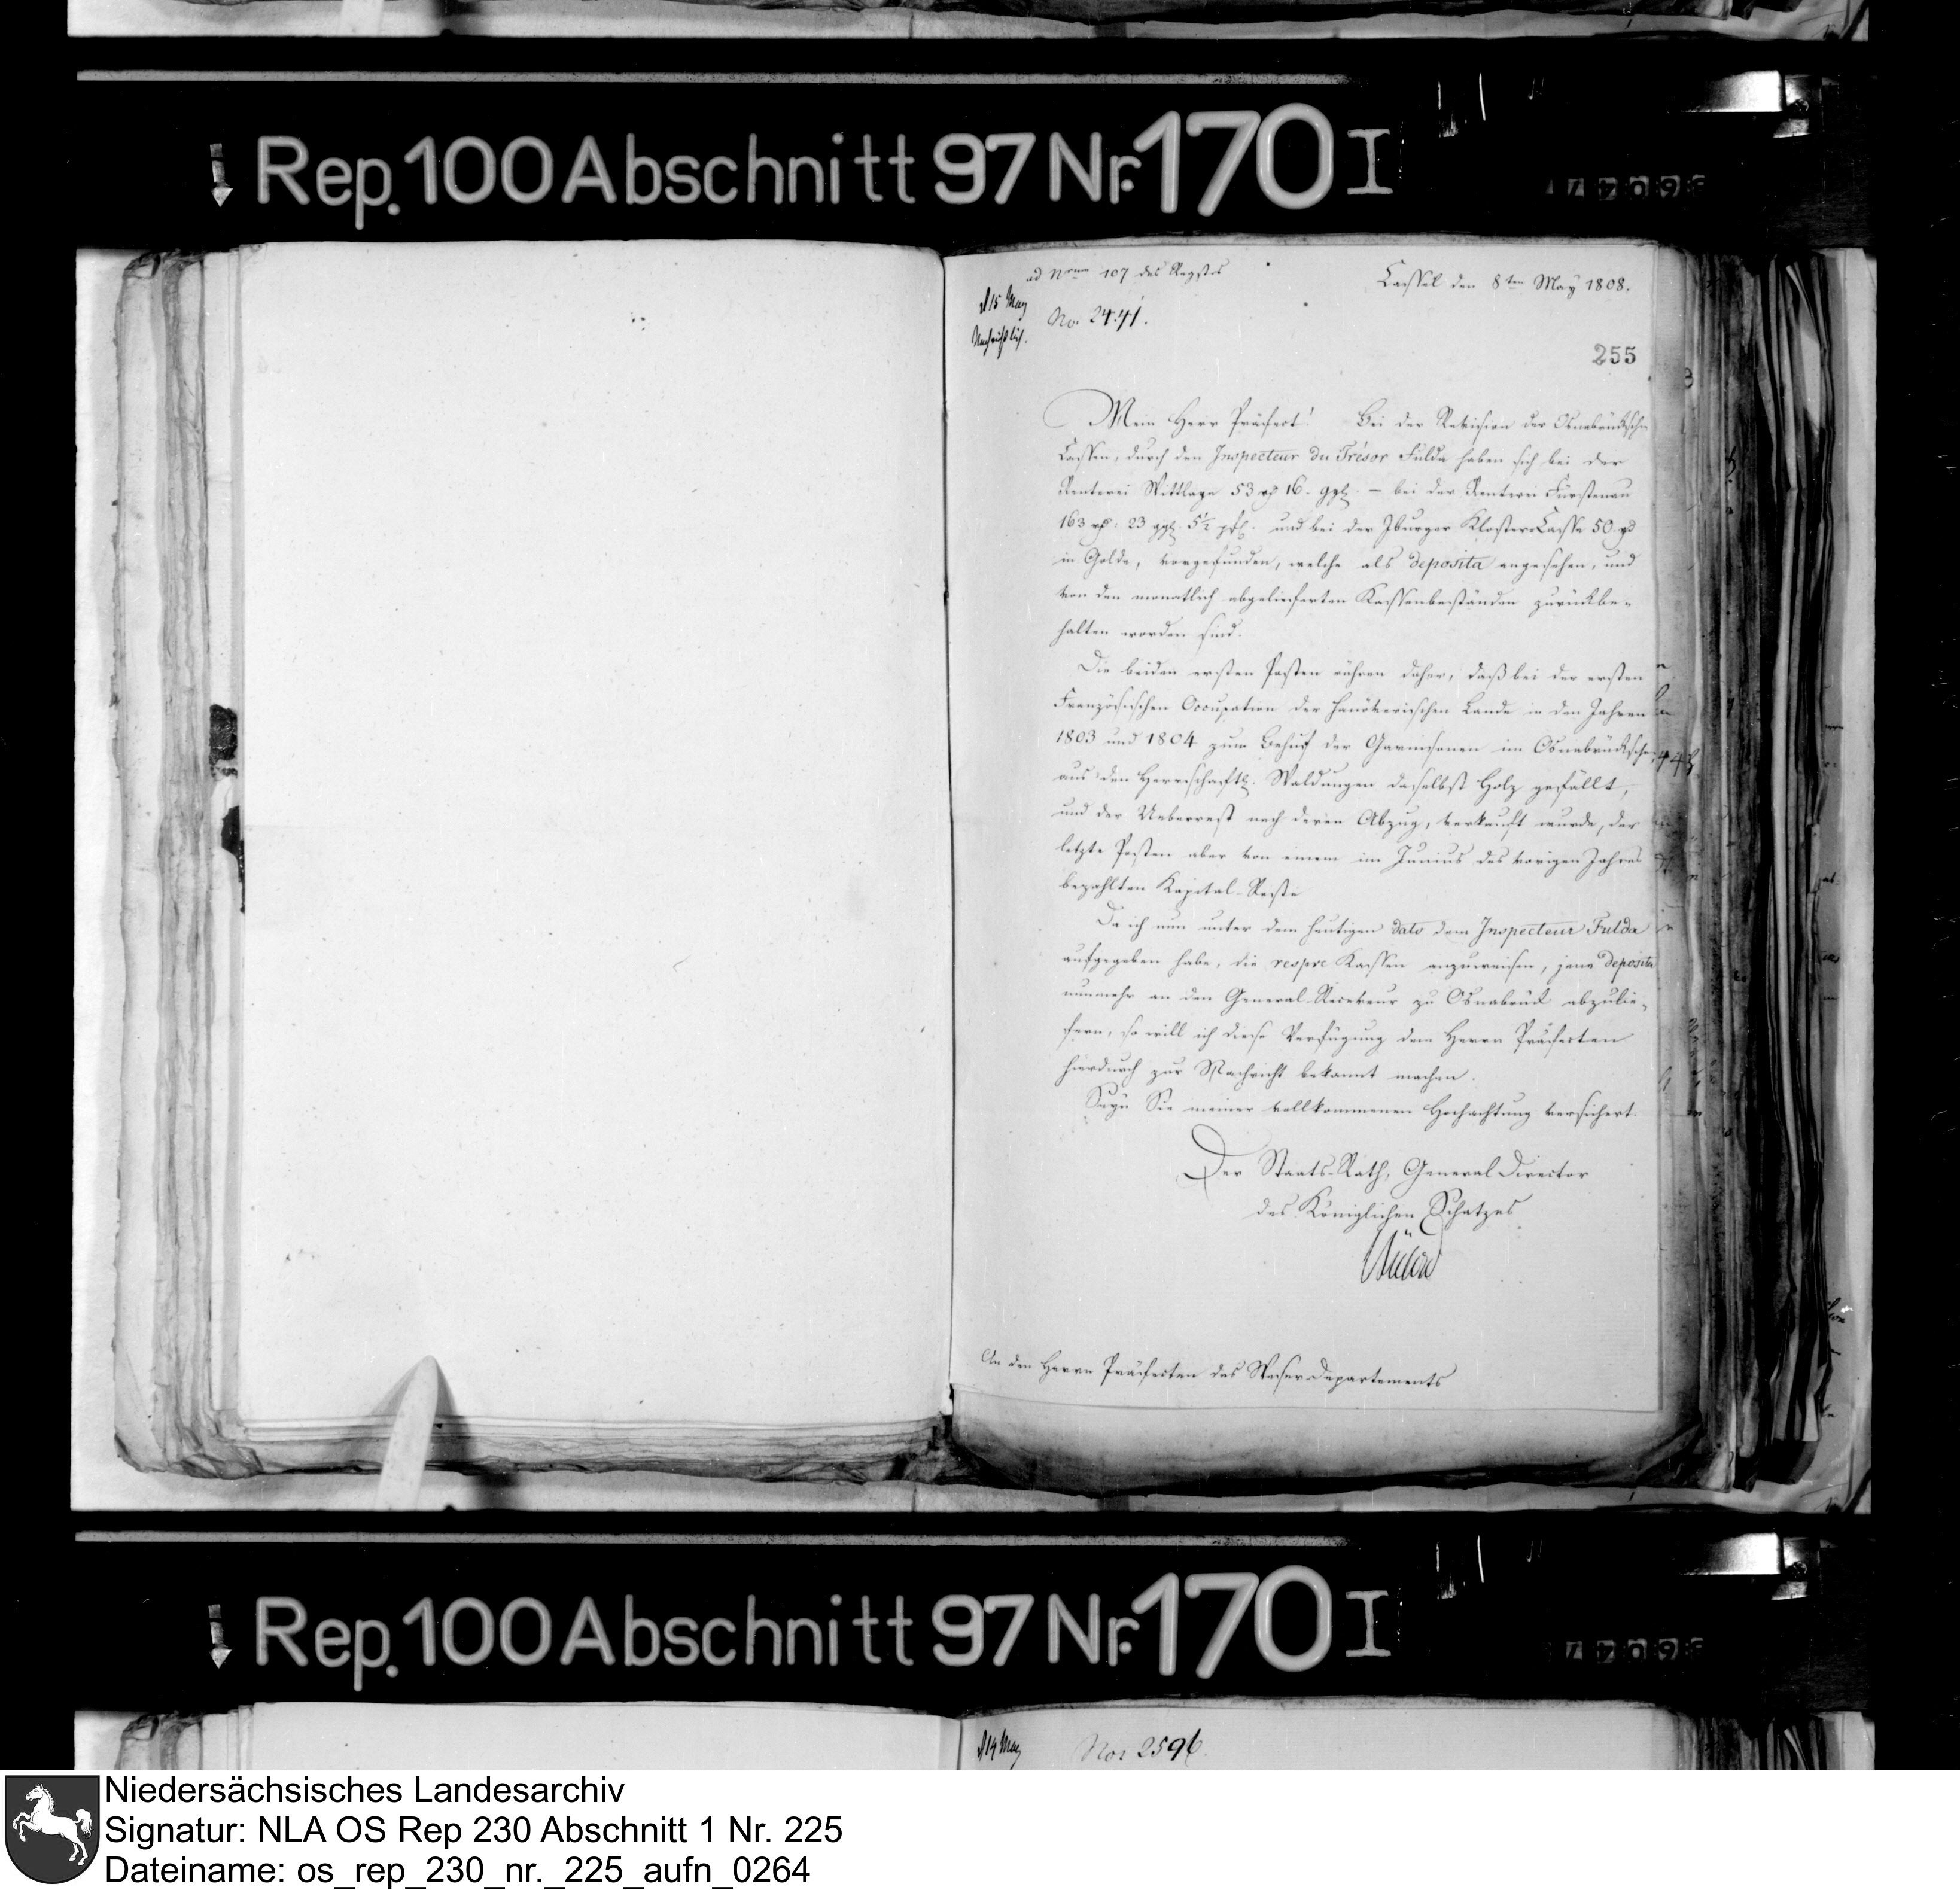 Rep. 100 Abschnitt 97 Nr. 170 I
ad Nrum 107 des Regstrs
Cassel den 8ten May 1808.
d 15 May
No. 2441.
Nachrichtlich.
255
Mein Herr Präfect! Bei der Revision der Osnabrückschen
Cassen, durch den Inspecteur du Trésor Fulda haben sich bei der
Renterei Wittlage 53 rthl 16. ggl. – bei der Renterei Fürstenau
163 rthl: 23 ggl. 5½ pf. und bei der Iburger Kloster Casse 50. rthl
in Golde, vorgefunden, welche als deposita angesehen, und
von den monatlich abgelieferten Kassenbeständen zurückbe-
halten worden sind.
Die beiden ersten Posten rühren daher, daß bei der ersten
Französischen Occupation der Hanöverischen Lande in den Jahren
1803 und 1804 zum Behuf der Garnisonen im Osnabrückschen
aus den Herrschaftl. Waldungen daselbst Holz gefällt,
und der Ueberrest nach deren Abzug, verkauft wurde, der
letzte Posten aber von einem im Junius des vorigen Jahres
bezahlten Kapital-Reste
Da ich nun unter dem heutigen dato dem Inspecteur Fulda
aufgegeben habe, die respve Kassen anzuweisen, jene deposita
nunmehr an den General-Receveur zu Osnabrück abzulie-
fern, so will ich diese Verfügung dem Herrn Präfecten
hierdurch zur Nachricht bekannt machen.
Seyn Sie meiner vollkommenen Hochachtung versichert.
Der Staats-Rath, General Director
des Königlichen Schatzes
Bülow
An den Herrn Präfecten des Weser Departements
Rep. 100 Abschnitt 97 Nr. 170 I
d 14 May
Nor 2596.
Niedersächsisches Landesarchiv
Signatur: NLA OS Rep 230 Abschnitt 1 Nr. 225
Dateiname: os_rep_230_nr._225_aufn_0264